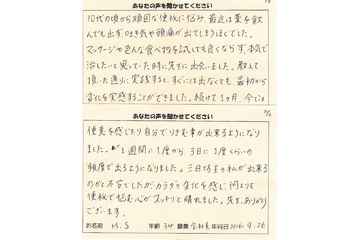 あなたの声を聞かせてください
10代の頃から頑固な便秘に悩み、最近は薬を飲
んでも出ず、吐き気や頭痛が出てしまうほどでした。
マッサージや色んな食べ物を試しても良くならず、本気で
治したいと思っていた時に先生に出会いました。教えて
頂いた通りに実践すると、すぐには出なくても、最初から
変化を実感することができました。続けて1ヶ月、今では
あなたの声を聞かせてください
便意を感じたり自分でりきむ事が出来るようになり
ました。1週間に1度から、3日に1度くらいの
頻度で出るようになりました。三日坊主の私が出来る
のかと不安でしたが、カラダの変化を感じ、何よりも
便秘で悩む心がスッキリと晴れました。先生、ありがとう
ございます。
お名前 M.S 年齢 34 職業 会社員 年月日 2016.9.26